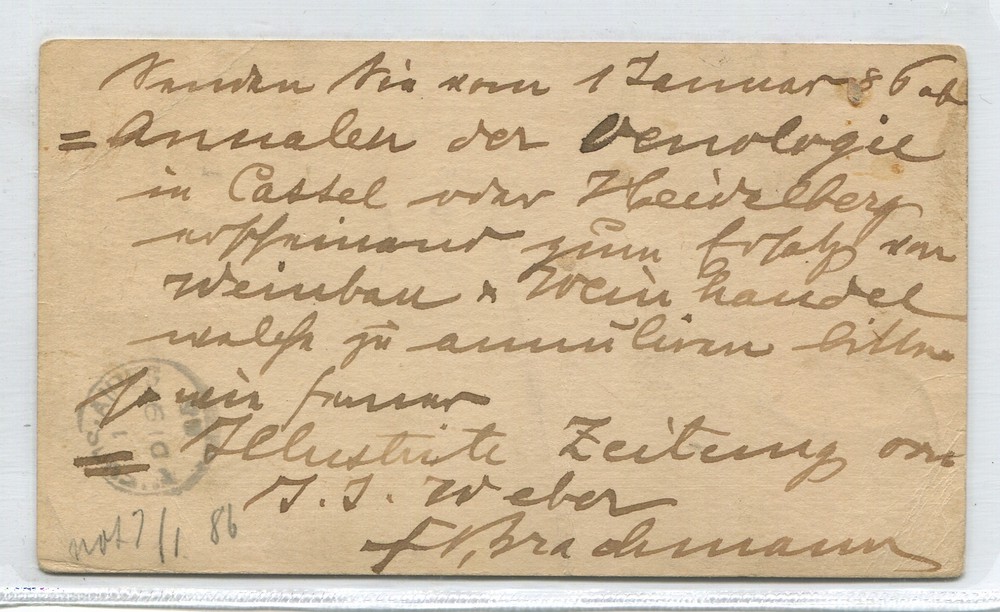 Senden Sie vom 1 Januar 86 ab
= Annalen der Oenologie
in Cassel oder Heidelberg
erscheinend zum Ersatz von
Weinbau & Weinhandel
welche zu annuliren bitte
so wie ferner
= Illustrirte Zeitung von
J. J. Weber
Brachmann
not 7/1 86